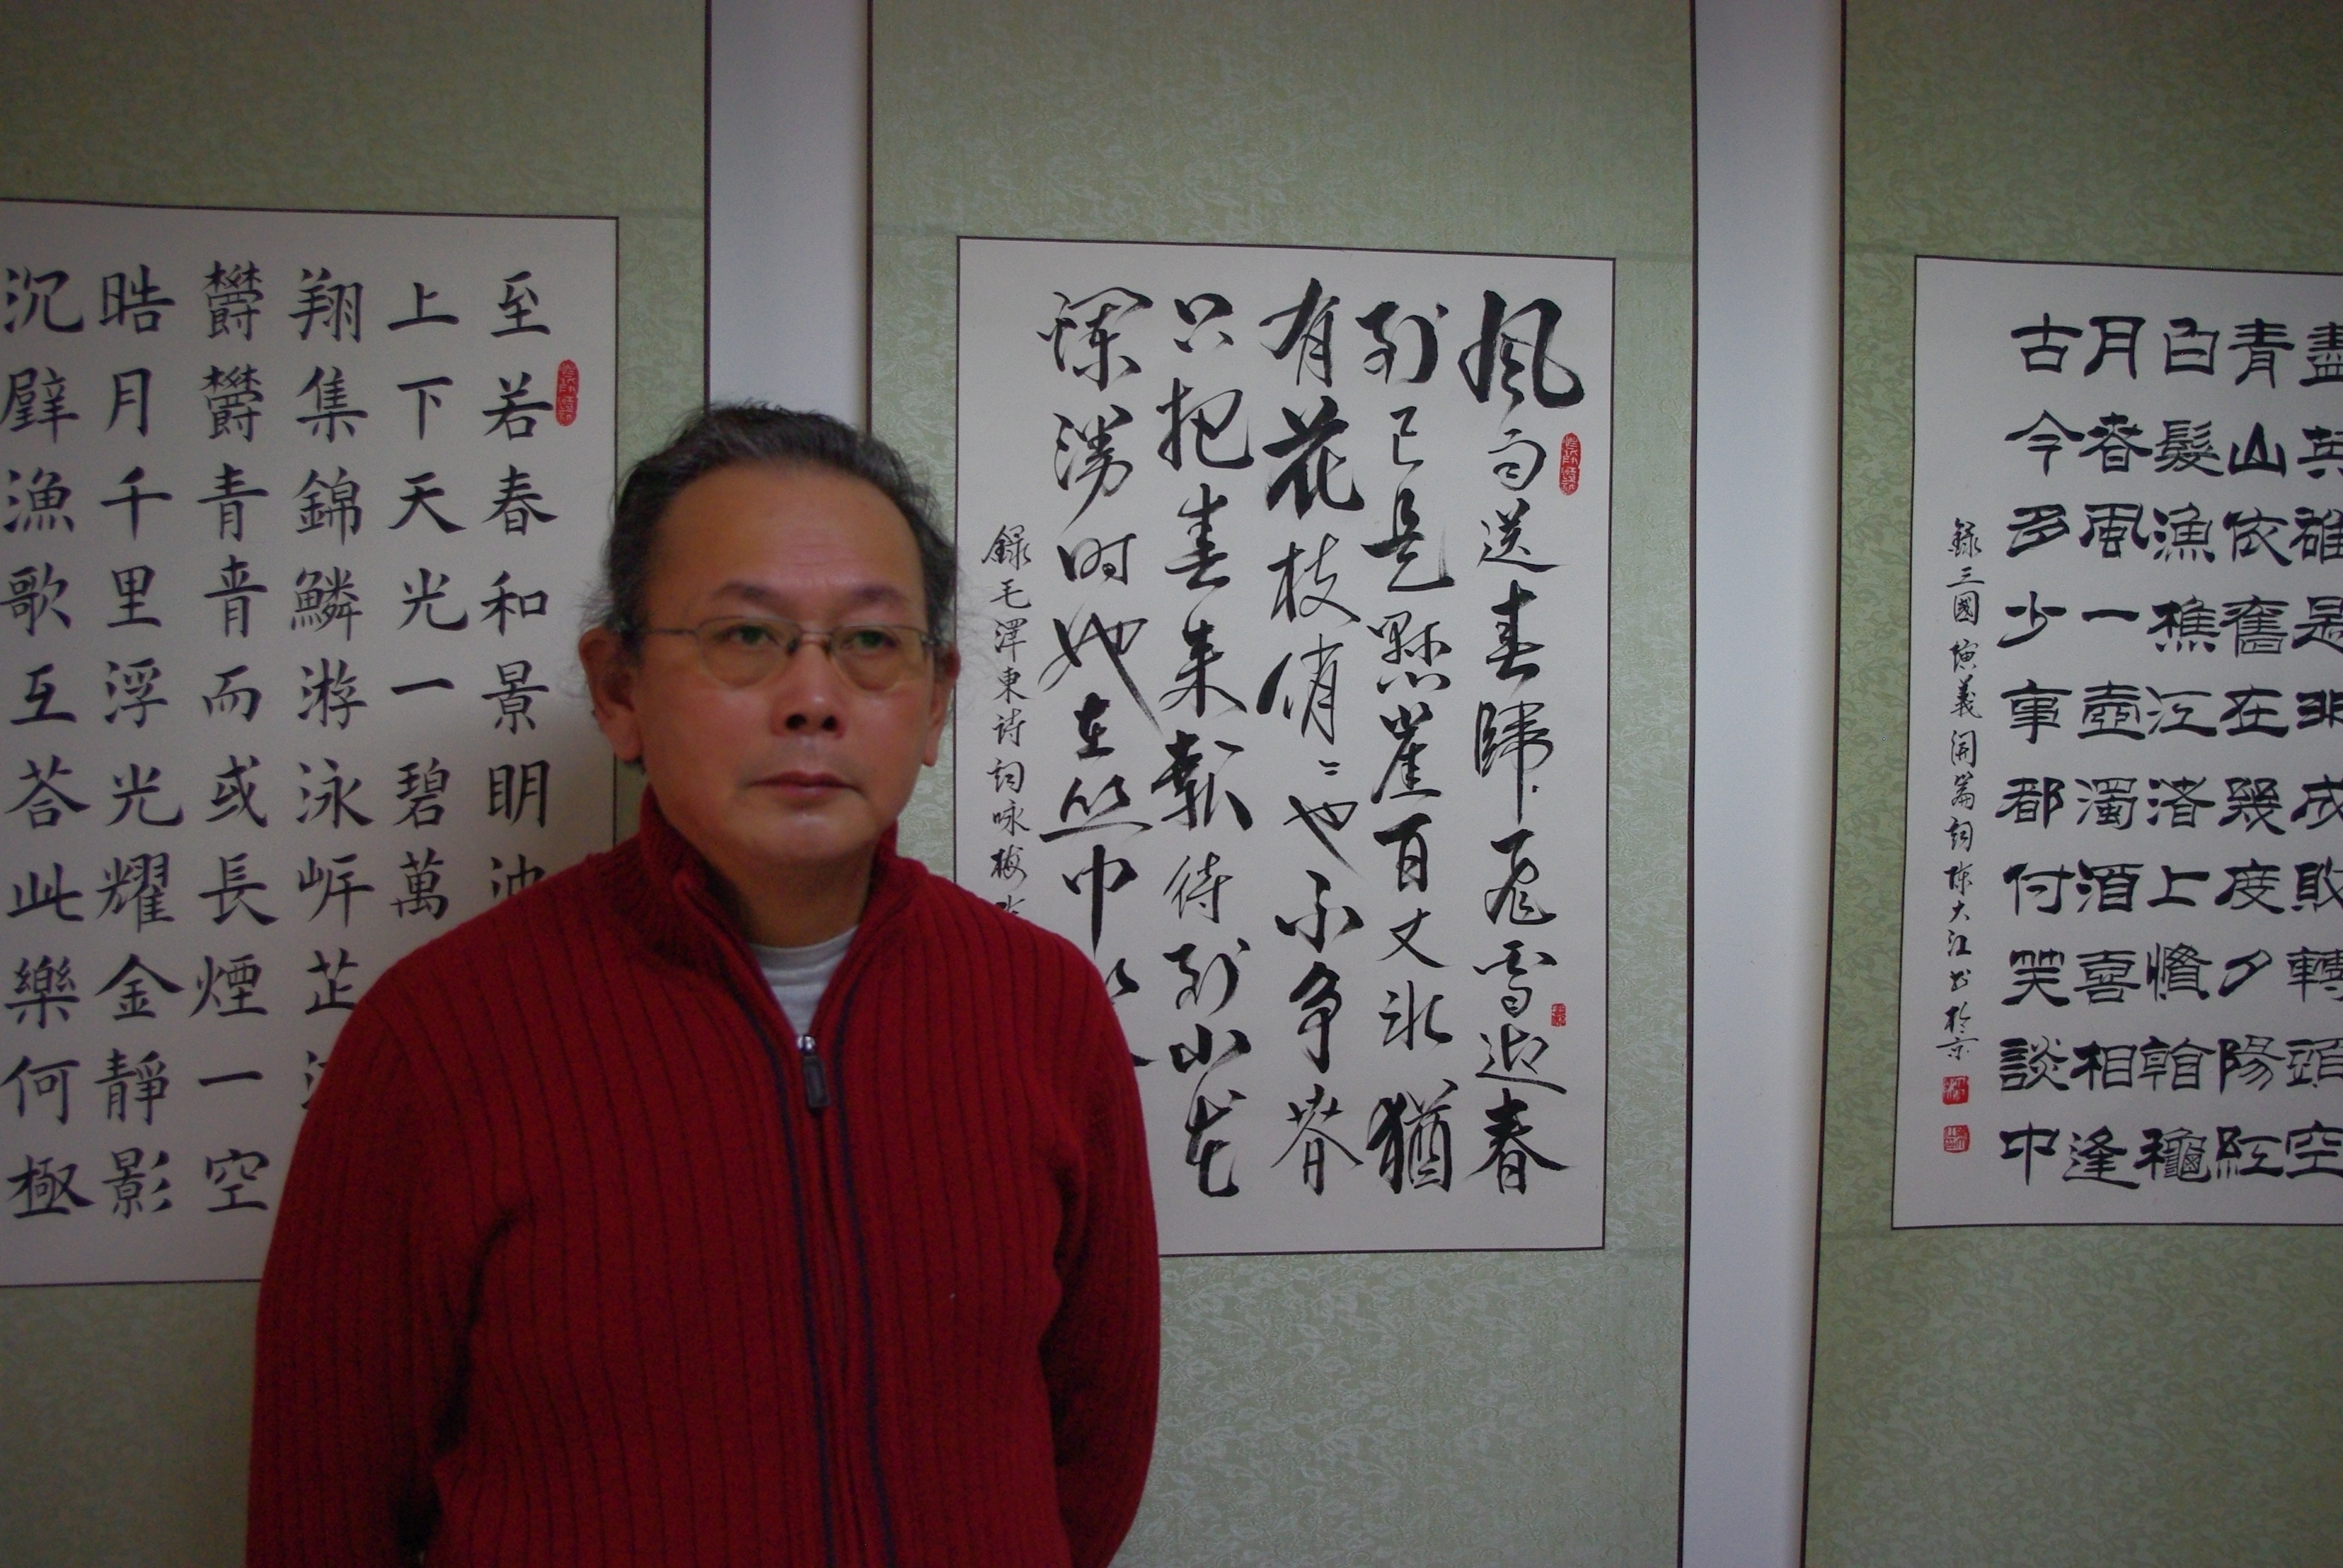 盡英雄是非成敗轉頭空
青山依舊在幾度夕陽紅
白髮漁樵江渚上慣看龝
月春風一壺濁酒喜相逢
古今多少事都付笑談中
錄三國演義開篇詞陳大江书於京
風雨送春歸飛雪迎春
到已是懸崖百丈冰猶
有花枝俏〻也不争春
只把春来報待到山花
爛漫时她在丛中
錄毛澤東诗詞咏梅
至若春和景明波
上下天光一碧萬
翔集錦鱗游泳岸芷
鬱鬱青青而或長煙一空
皓月千里浮光耀金靜影
沉璧漁歌互荅此樂何極